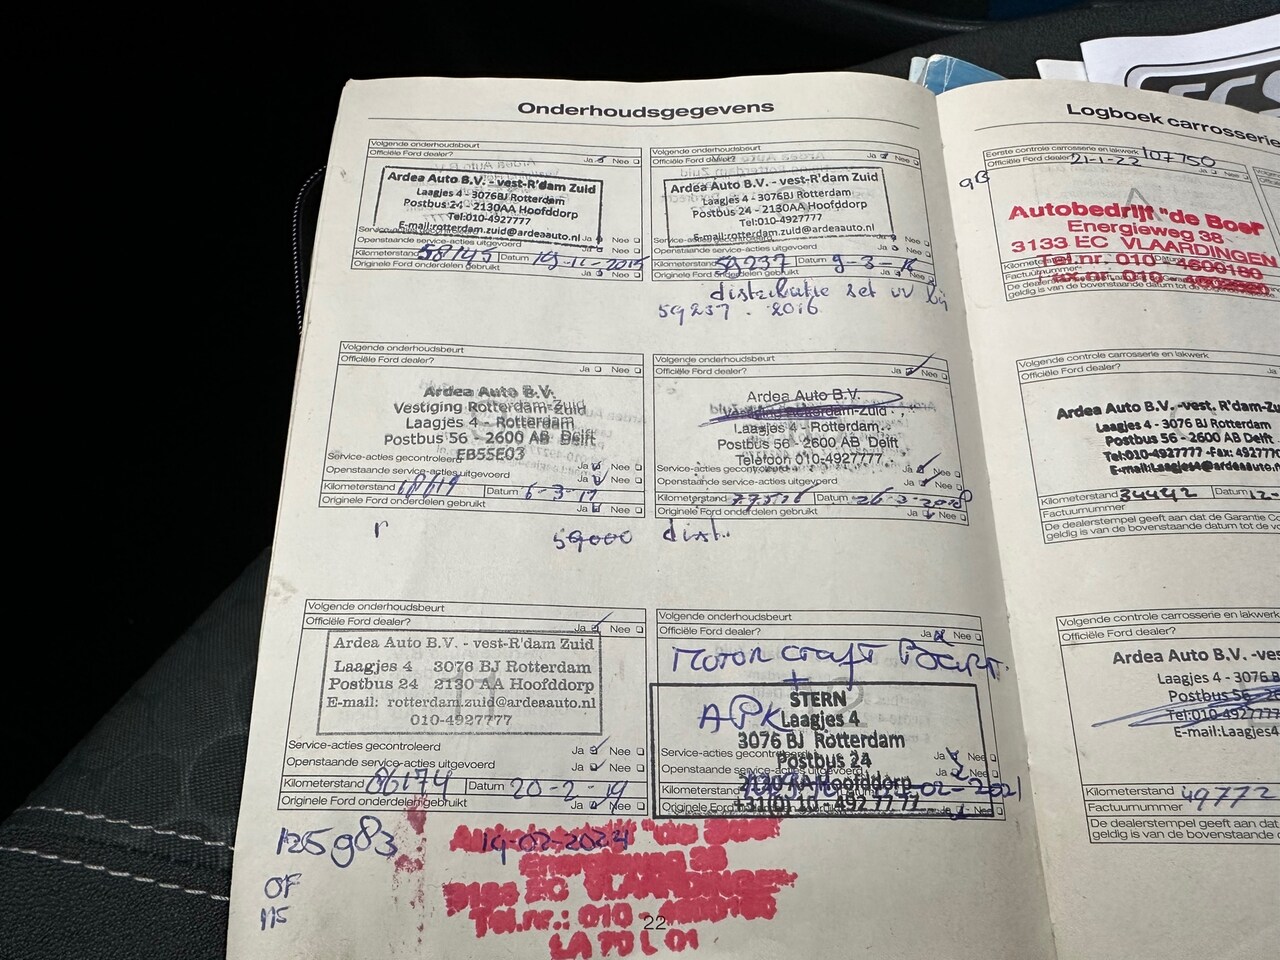 Onderhoudsgegevens
Volgende onderhoudsbeurt
Officiële Ford dealer? Ja Nee
Ardea Auto B.V. - vest-R'dam Zuid
Laagjes 4 - 3076BJ Rotterdam
Postbus 24 - 2130AA Hoofddorp
Tel:010-4927777
E-mail:rotterdam.zuid@ardeaauto.nl
Openstaande service-acties uitgevoerd Ja Nee
Kilometerstand 58145 Datum 19-11-2015
Originele Ford onderdelen gebruikt Ja Nee
Volgende onderhoudsbeurt
Officiële Ford dealer? Ja Nee
Ardea Auto B.V. - vest-R'dam Zuid
Laagjes 4 - 3076BJ Rotterdam
Postbus 24 - 2130AA Hoofddorp
Tel:010-4927777
E-mail:rotterdam.zuid@ardeaauto.nl
Openstaande service-acties uitgevoerd Ja Nee
Kilometerstand 59237 Datum 9-3-16
Originele Ford onderdelen gebruikt Ja Nee
distributie set vv bij
59237 . 2016
Volgende onderhoudsbeurt
Officiële Ford dealer? Ja Nee
Ardea Auto B.V.
Vestiging Rotterdam-Zuid
Laagjes 4 - Rotterdam
Postbus 56 - 2600 AB Delft
EB55E03
Service-acties gecontroleerd Ja Nee
Openstaande service-acties uitgevoerd Ja Nee
Kilometerstand Datum 6-3-17
Originele Ford onderdelen gebruikt Ja Nee
r 59000 dist.
Volgende onderhoudsbeurt
Officiële Ford dealer? Ja Nee
Ardea Auto B.V.
Laagjes 4 - Rotterdam
Postbus 56 - 2600 AB Delft
Telefoon 010-4927777
Service-acties gecontroleerd Ja Nee
Openstaande service-acties uitgevoerd Ja Nee
Kilometerstand Datum 26-3-2018
Originele Ford onderdelen gebruikt Ja Nee
Volgende onderhoudsbeurt
Officiële Ford dealer? Ja Nee
Ardea Auto B.V. - vest-R'dam Zuid
Laagjes 4 3076 BJ Rotterdam
Postbus 24 2130 AA Hoofddorp
E-mail: rotterdam.zuid@ardeaauto.nl
010-4927777
Service-acties gecontroleerd Ja Nee
Openstaande service-acties uitgevoerd Ja Nee
Kilometerstand 86174 Datum 20-2-19
Originele Ford onderdelen gebruikt Ja Nee
Volgende onderhoudsbeurt
Officiële Ford dealer? Ja Nee
Motorcraft Beurt
+
APK
STERN
Laagjes 4
3076 BJ Rotterdam
Postbus 24
2130 AA Hoofddorp
02-2021
125983 19-02-2024
OF
115
Energieweg 38
3133 EC VLAARDINGEN
Tel.nr.: 010 - 4600160
LA 70 L 01
22
Logboek carrosserie
Eerste controle carrosserie en lakwerk
Officiële Ford dealer? Ja Nee
21-1-22 107750
Autobedrijf "de Boer"
Energieweg 38
3133 EC VLAARDINGEN
Tel.nr. 010 - 4600160
Factuurnummer
Volgende controle carrosserie en lakwerk
Officiële Ford dealer?
Ardea Auto B.V. -vest. R'dam-Zu
Laagjes 4 - 3076 BJ Rotter
Postbus 56 - 2600 AB Delft
Tel:010-4927777 -Fax: 492777
E-mail:Laagjes4@ardeaauto.n
Kilometerstand 34442 Datum 12-
Factuurnummer
De dealerstempel geeft aan dat de Garantie Co
geldig is van de bovenstaande datum tot de vo
Volgende controle carrosserie en lakwerk
Officiële Ford dealer?
Ardea Auto B.V. -ves
Laagjes 4 - 3076 B
Postbus 56 - 26
Tel:010-492777
E-mail:Laagjes4
Kilometerstand 49772
Factuurnummer
De dealerstempel geeft aan dat
geldig is van de bovenstaande d